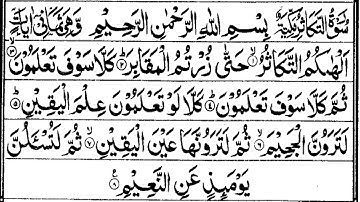 سُوْرَةُ التَّكَاثُرِ مَكِّيَّةٌ بِسْمِ اللهِ الرَّحْمٰنِ الرَّحِيْمِ وَهِيَ ثَمَانِيْ اٰيَاتٍ
اَلْهٰىكُمُ التَّكَاثُرُ ۙ۱ حَتّٰى زُرْتُمُ الْمَقَابِرَ ؕ۲ كَلَّا سَوْفَ تَعْلَمُوْنَ ۙ۳
ثُمَّ كَلَّا سَوْفَ تَعْلَمُوْنَ ؕ۴ كَلَّا لَوْ تَعْلَمُوْنَ عِلْمَ الْيَقِيْنِ ؕ۵
لَتَرَوُنَّ الْجَحِيْمَ ۙ۶ ثُمَّ لَتَرَوُنَّهَا عَيْنَ الْيَقِيْنِ ۙ۷ ثُمَّ لَتُسْـَٔلُنَّ
يَوْمَىِٕذٍ عَنِ النَّعِيْمِ ۸